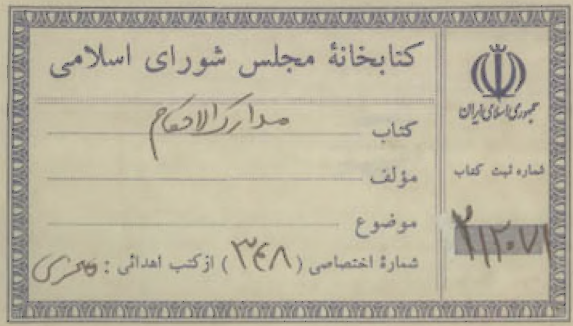 کتابخانهٔ مجلس شورای اسلامی
کتاب مدارک الاحکام
مؤلف
موضوع
شمارهٔ اختصاصی (۳۴۸) از کتب اهدائی :
جمهوری اسلامی ایران
شماره ثبت کتاب